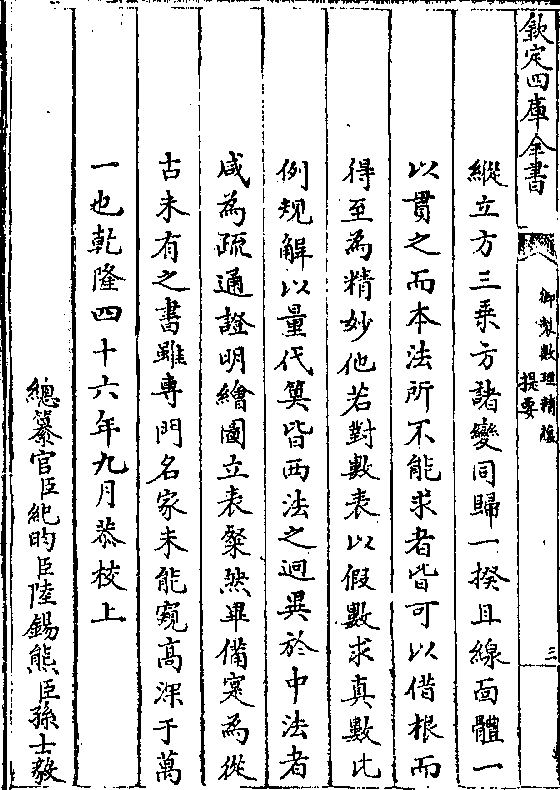 欽定四庫全書
御製數理精蘊
提要
三
縱立方三乗方諸變同歸一揆且線面體一
以貫之而本法所不能求者皆可以借根而
得至為精妙他若對數表以假數求真數比
例規解以量代算皆西法之迥異於中法者
咸為疏通證明繪圖立表粲然畢備寔為從
古未有之書雖專門名家未能窺高深于萬
一也乾隆四十六年九月恭校上
總纂官臣紀昀臣陸錫熊臣孫士毅